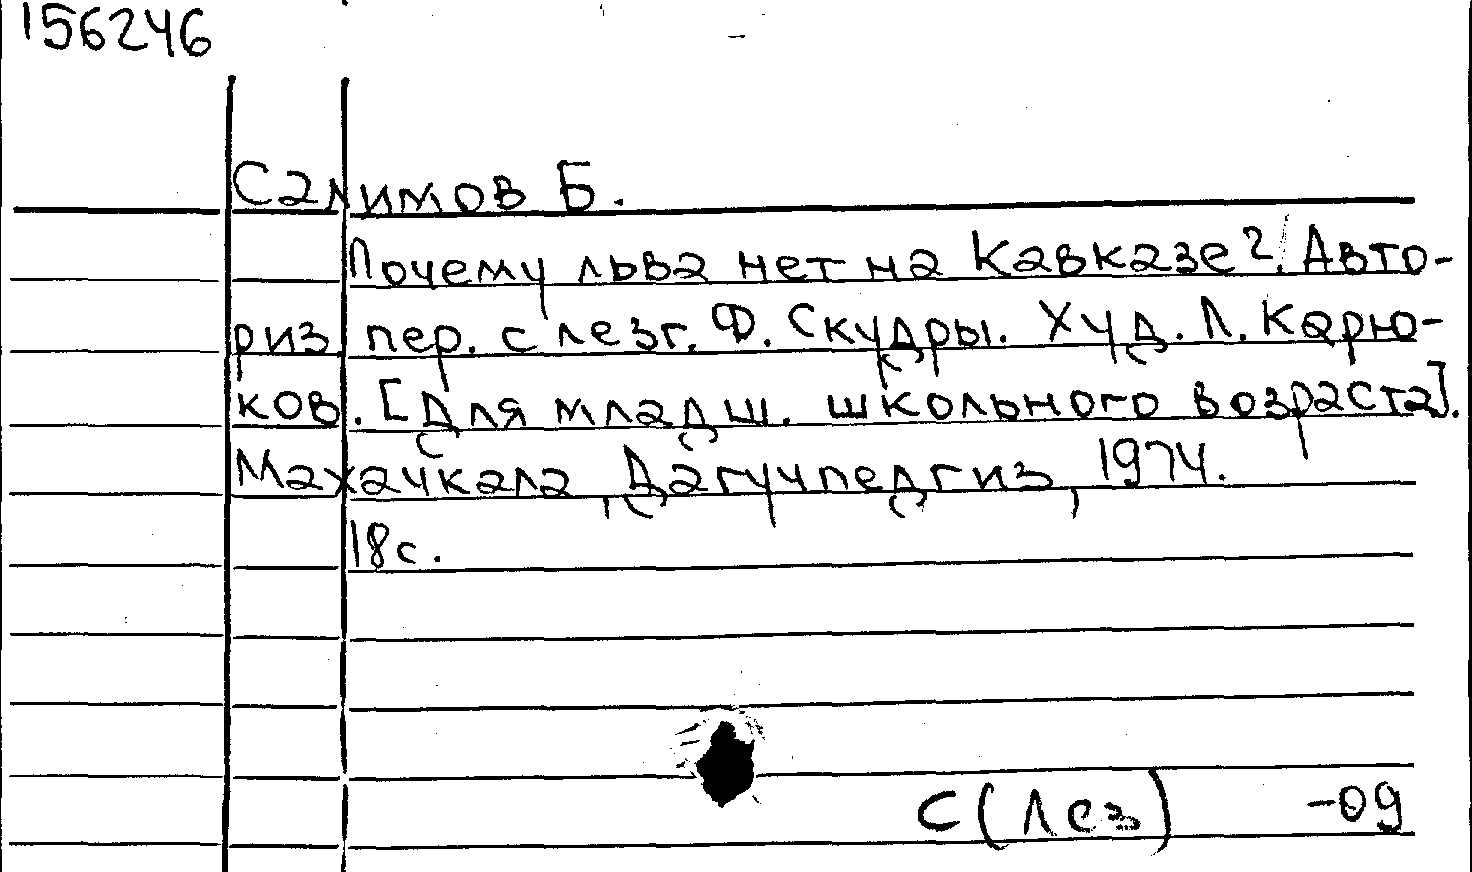 156246
Салимов Б.
Почему льва нет на Кавказе? Авто-
риз. пер. с лезг. Ф. Скудры. Худ. Л. Карю-
ков. [Для младш. школьного возраста].
Махачкала, Дагучпедгиз, 1974.
18с.
С(Лез) -09